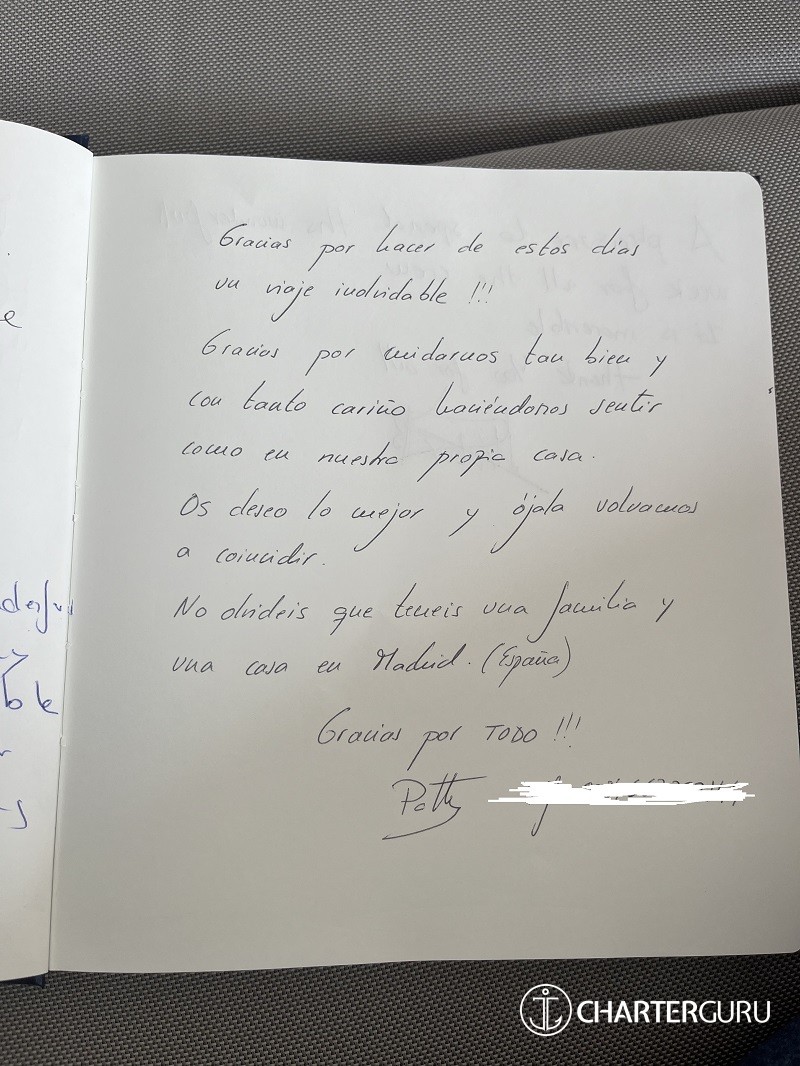 Gracias por hacer de estos días
un viaje inolvidable !!!
Gracias por cuidarnos tan bien y
con tanto cariño haciéndonos sentir
como en nuestra propia casa.
Os deseo lo mejor y ójala volvamos
a coincidir.
No olvideis que teneis una familia y
una casa en Madrid. (España)
Gracias por TODO !!!
Patty
CHARTERGURU